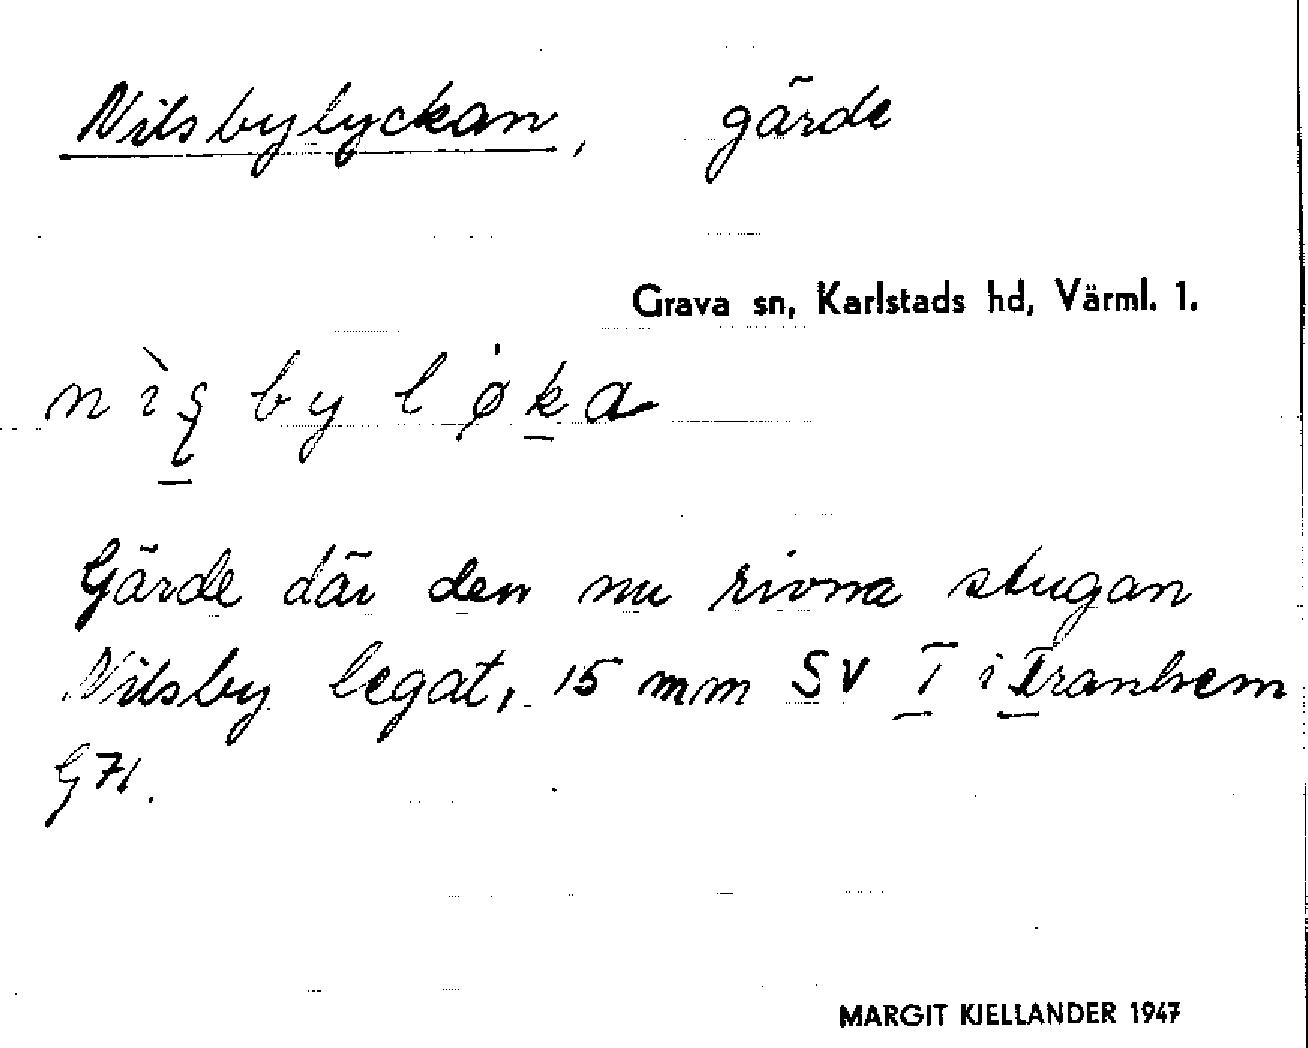 Nilsbylyckan, gärde
Grava sn, Karlstads hd, Värml. 1.
Gärde där den nu rivna stugan
Nilsby legat, 15 mm SV T i Tranhem
G71.
MARGIT KJELLANDER 1947